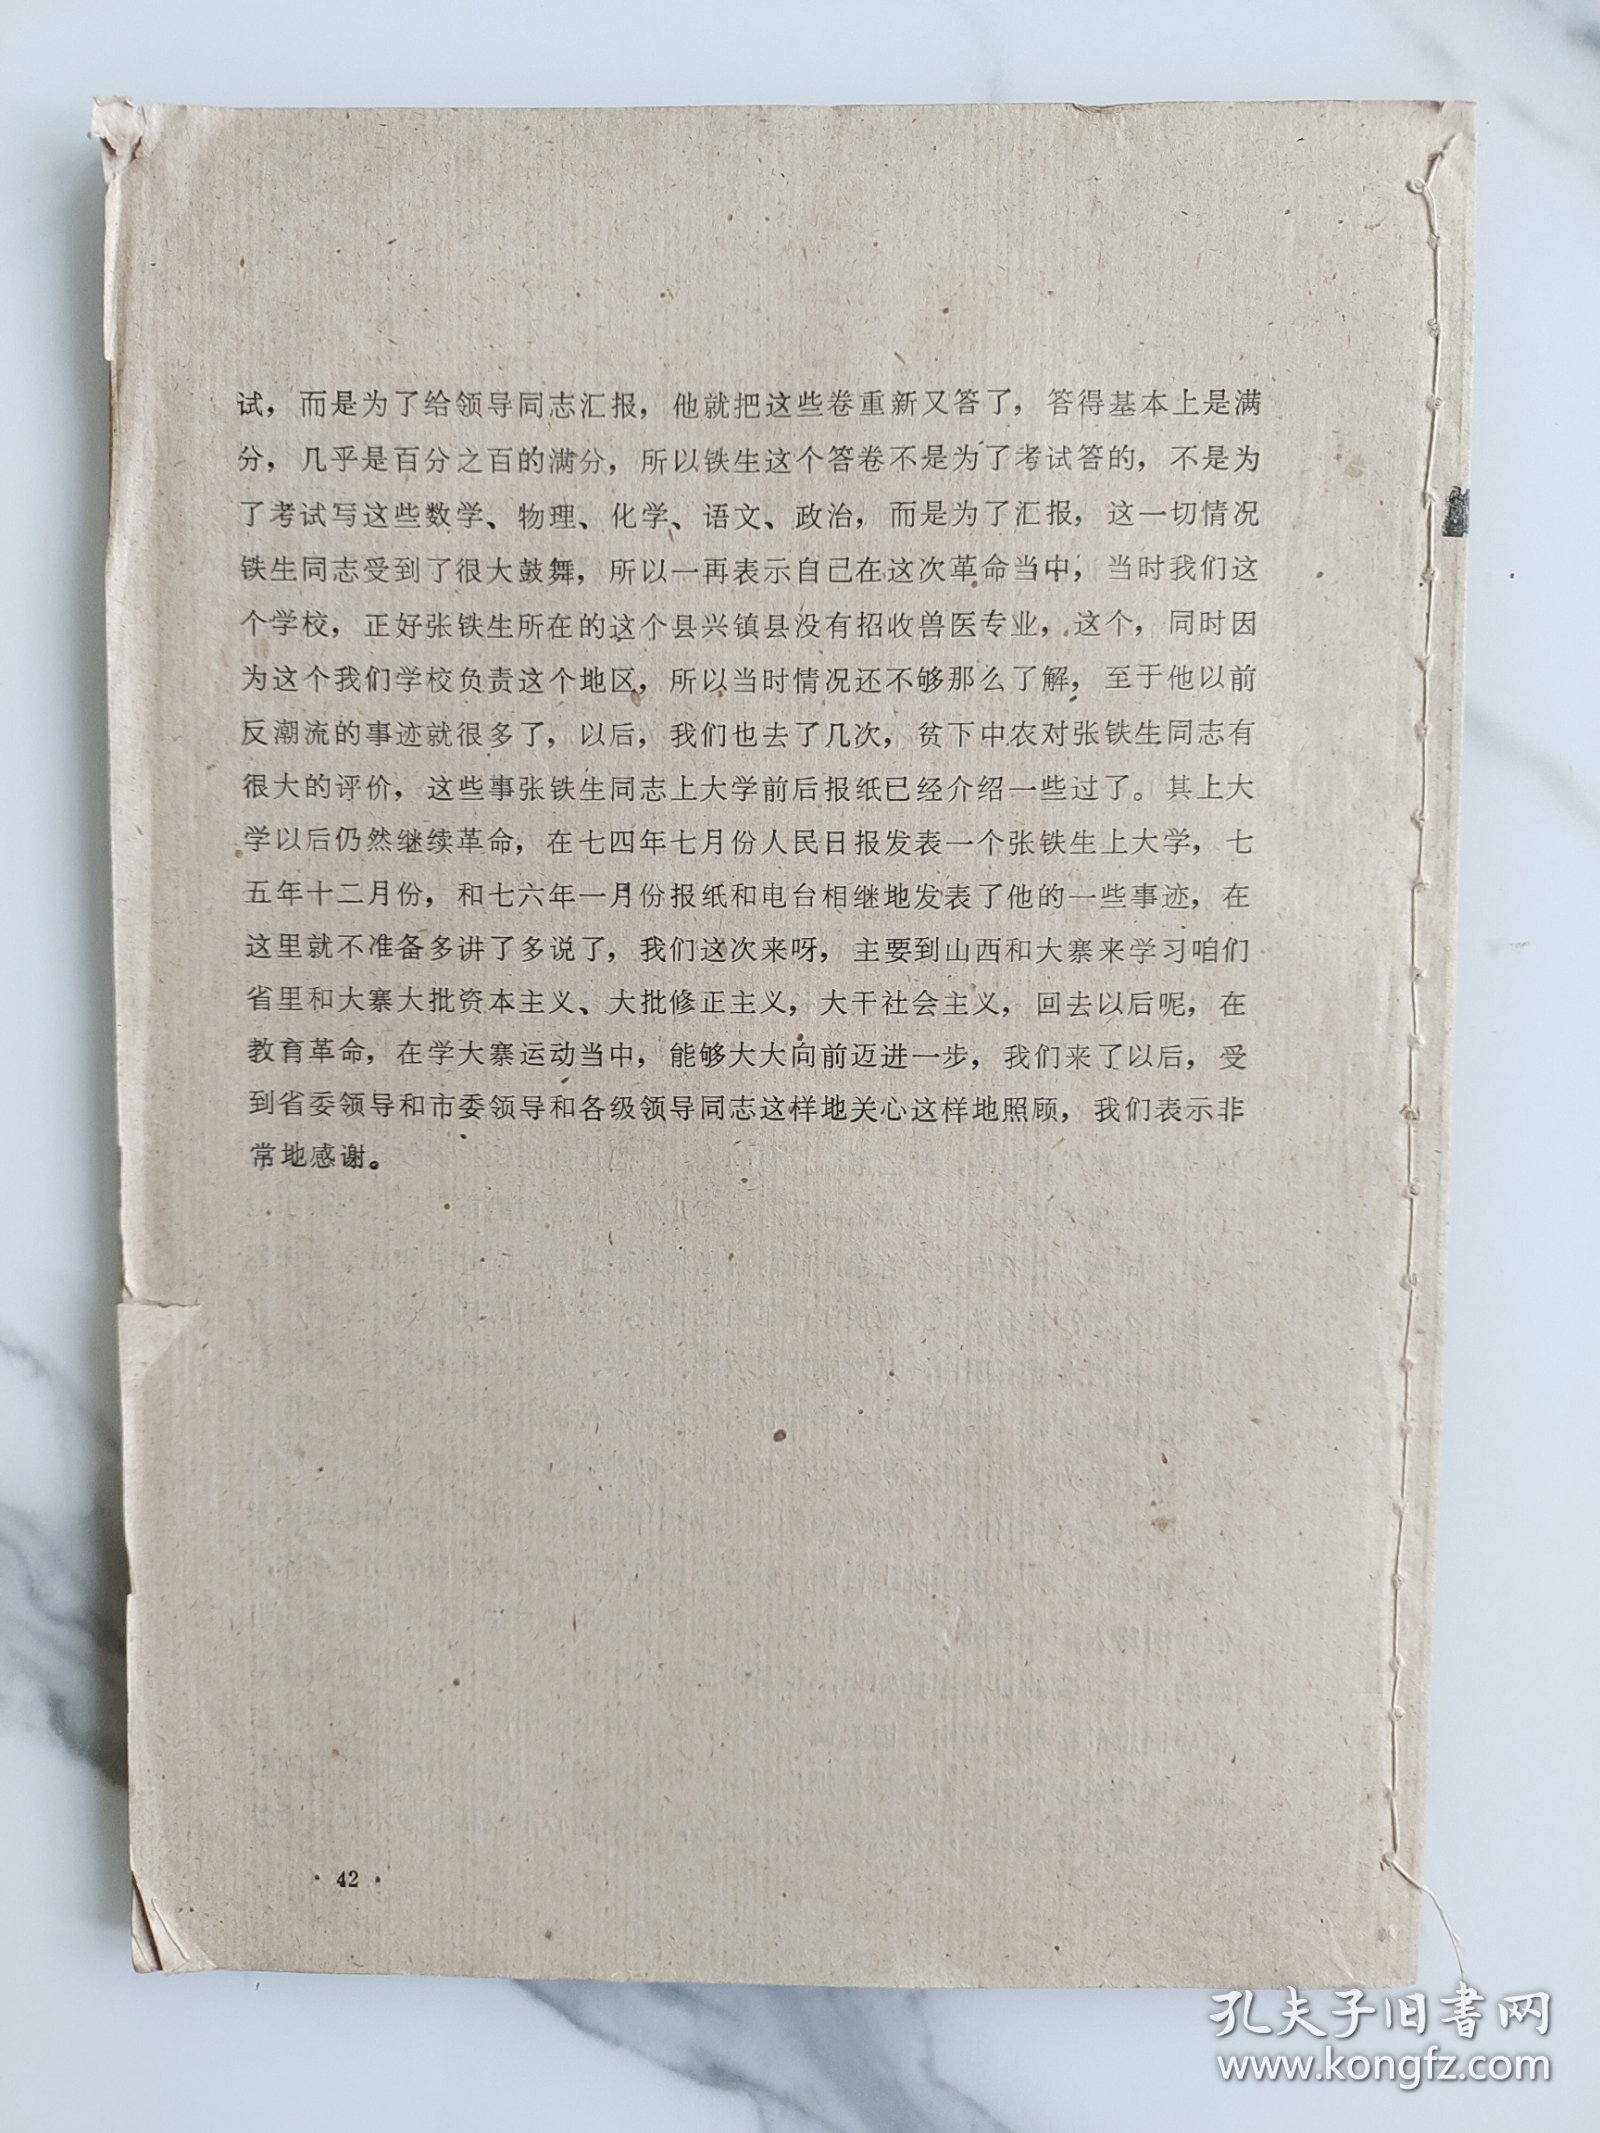 试，而是为了给领导同志汇报，他就把这些卷重新又答了，答得基本上是满
分，几乎是百分之百的满分，所以铁生这个答卷不是为了考试答的，不是为
了考试写这些数学、物理、化学、语文、政治，而是为了汇报，这一切情况
铁生同志受到了很大鼓舞，所以一再表示自己在这次革命当中，当时我们这
个学校，正好张铁生所在的这个县兴镇县没有招收兽医专业，这个，同时因
为这个我们学校负责这个地区，所以当时情况还不够那么了解，至于他以前
反潮流的事迹就很多了，以后，我们也去了几次，贫下中农对张铁生同志有
很大的评价，这些事张铁生同志上大学前后报纸已经介绍一些过了。其上大
学以后仍然继续革命，在七四年七月份人民日报发表一个张铁生上大学，七
五年十二月份，和七六年一月份报纸和电台相继地发表了他的一些事迹，在
这里就不准备多讲了多说了，我们这次来呀，主要到山西和大寨来学习咱们
省里和大寨大批资本主义、大批修正主义，大干社会主义，回去以后呢，在
教育革命，在学大寨运动当中，能够大大向前迈进一步，我们来了以后，受
到省委领导和市委领导和各级领导同志这样地关心这样地照顾，我们表示非
常地感谢。
· 42 ·
孔夫子旧书网
www.kongfz.com